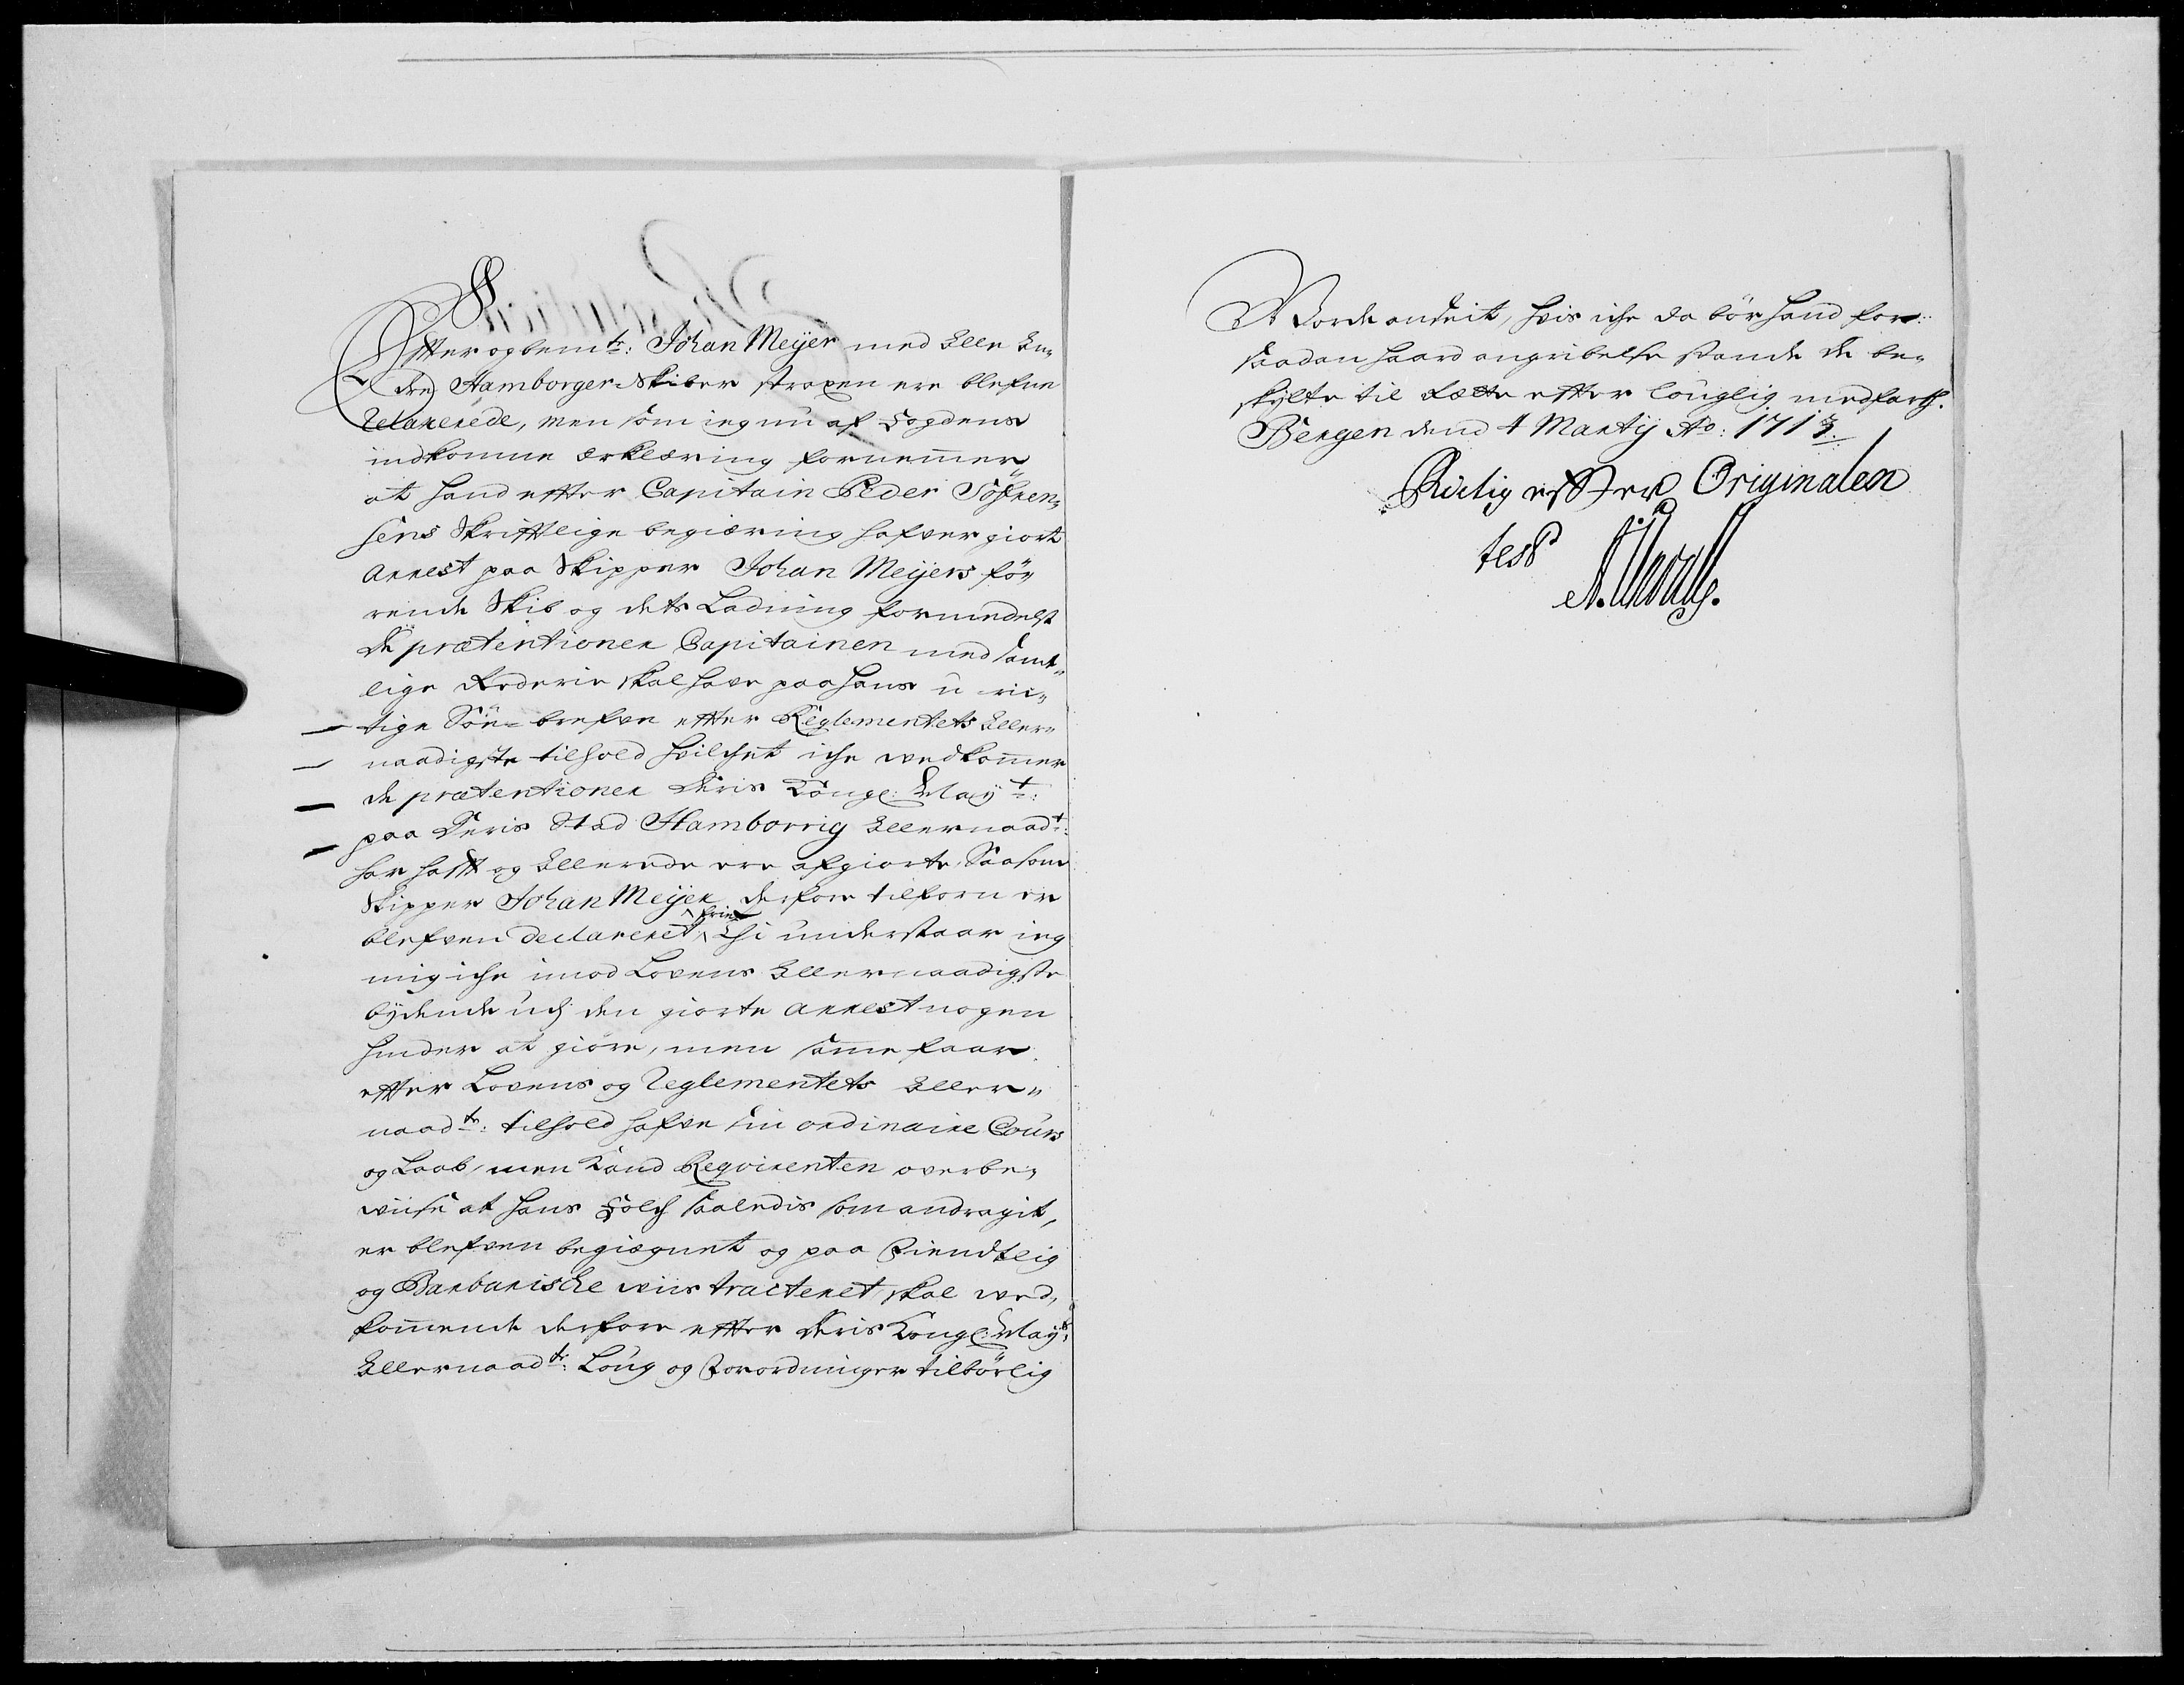 Efter ogbemte: Johan Meÿer med Alle An-
dre Hamborger Skiber straxen ere blefven
relaxerede, men som ieg nu af Fogdens
indkomne Erklæring fornemmer
at hand effter Capitain Peder Søfren-
sens Skrifftlige begiæring hafver giort
Arrest paa Skipper Johan Meÿers fø-
rende Skib og dets Ladning formedelst
De prætentioner Capitainen med samt-
lige Rederie skal have paa hans u-ric-
tige Søe-brefve effter Reglementets Aller-
naadigste tilhold hvilchet iche vedkommer
de prætentioner Deris Kongl: Maÿt:
paa Deris Stad Hamborrig Allernaadt:
har hafft og Allerede ere afgiorte, Saasom
Skipper Johan Meÿer derfore tilforn er
blefven declareret frie, Thi understaar ieg
mig iche imod Lovens Allernaadigste
bÿdende udj den giorte Arrest nogen
hinder at giøre, men samme faar
effter Lovens og Reglementets Aller-
naadte: tilhold hafve sin ordinaire Cours
og Laab, men Kand Reqvirenten overbe-
viise at hans Folch saaledis som andragit,
er blefven begiegnet og paa Fiendtlig
og Barbarische viis tracteret, skal ved-
kommende derfore effter Deris Kongl: Maÿts:
Allernaadte: Loug og Forordninger tilbørlig
Worde anseet, hvis iche da bør hand for
saadan haard angribelse stande de be-
skÿlte til Rætte effter louglig medfart.
Bergen dend 4 Martÿ Ao: 1713
Rictig effter Originalen
test